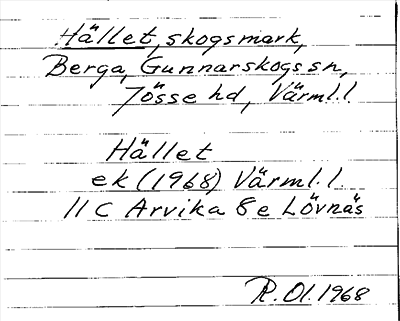 Hället, skogsmark,
Berga, Gunnarskogs sn,
Jösse hd, Värml. l.
Hället
ek (1968) Värml. l.
11 C Arvika 8 e Lövnäs
R. Ol. 1968